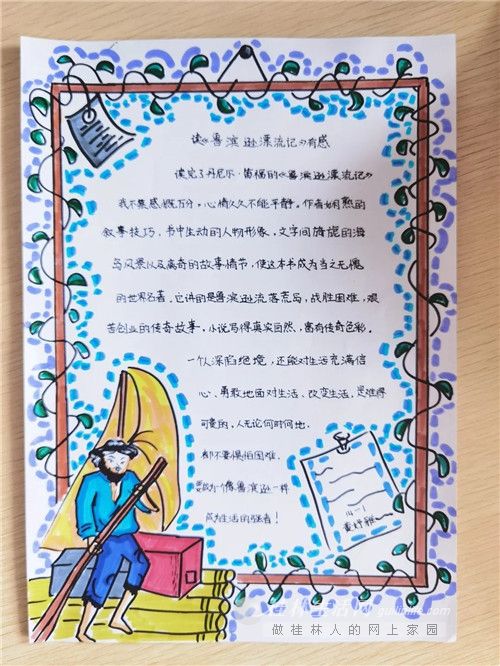 读《鲁滨逊漂流记》有感
读完了丹尼尔·笛福的《鲁滨逊漂流记》
我不禁感慨万分，心情久久不能平静。作者娴熟的
叙事技巧，书中生动的人物形象，文字间旖旎的海
岛风景以及离奇的故事情节，使这本书成为当之无愧
的世界名著。它讲的是鲁滨逊流落荒岛，战胜困难，艰
苦创业的传奇故事，小说写得真实自然，富有传奇色彩。
一个人深陷绝境，还能对生活充满信
心，勇敢地面对生活、改变生活，是难得
可贵的，人无论何时何地，
都不要惧怕困难，
要做一个像鲁滨逊一样
成为生活的强者！
做桂林人的网上家园